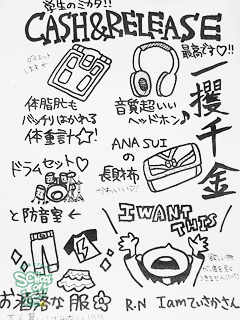 学生のミカタ!!
CASH&RELEASE
最高です♡!!
一攫千金
体脂肪も
バッチリはかれる
体重計☆!
音質超いい
ヘッドホン♪
ANA SUI
の
長財布
かわいい♡!
ドラムセット♡
と防音室←
I WANT
THIS
お洒落な服
R.N Iamてぃさかさん